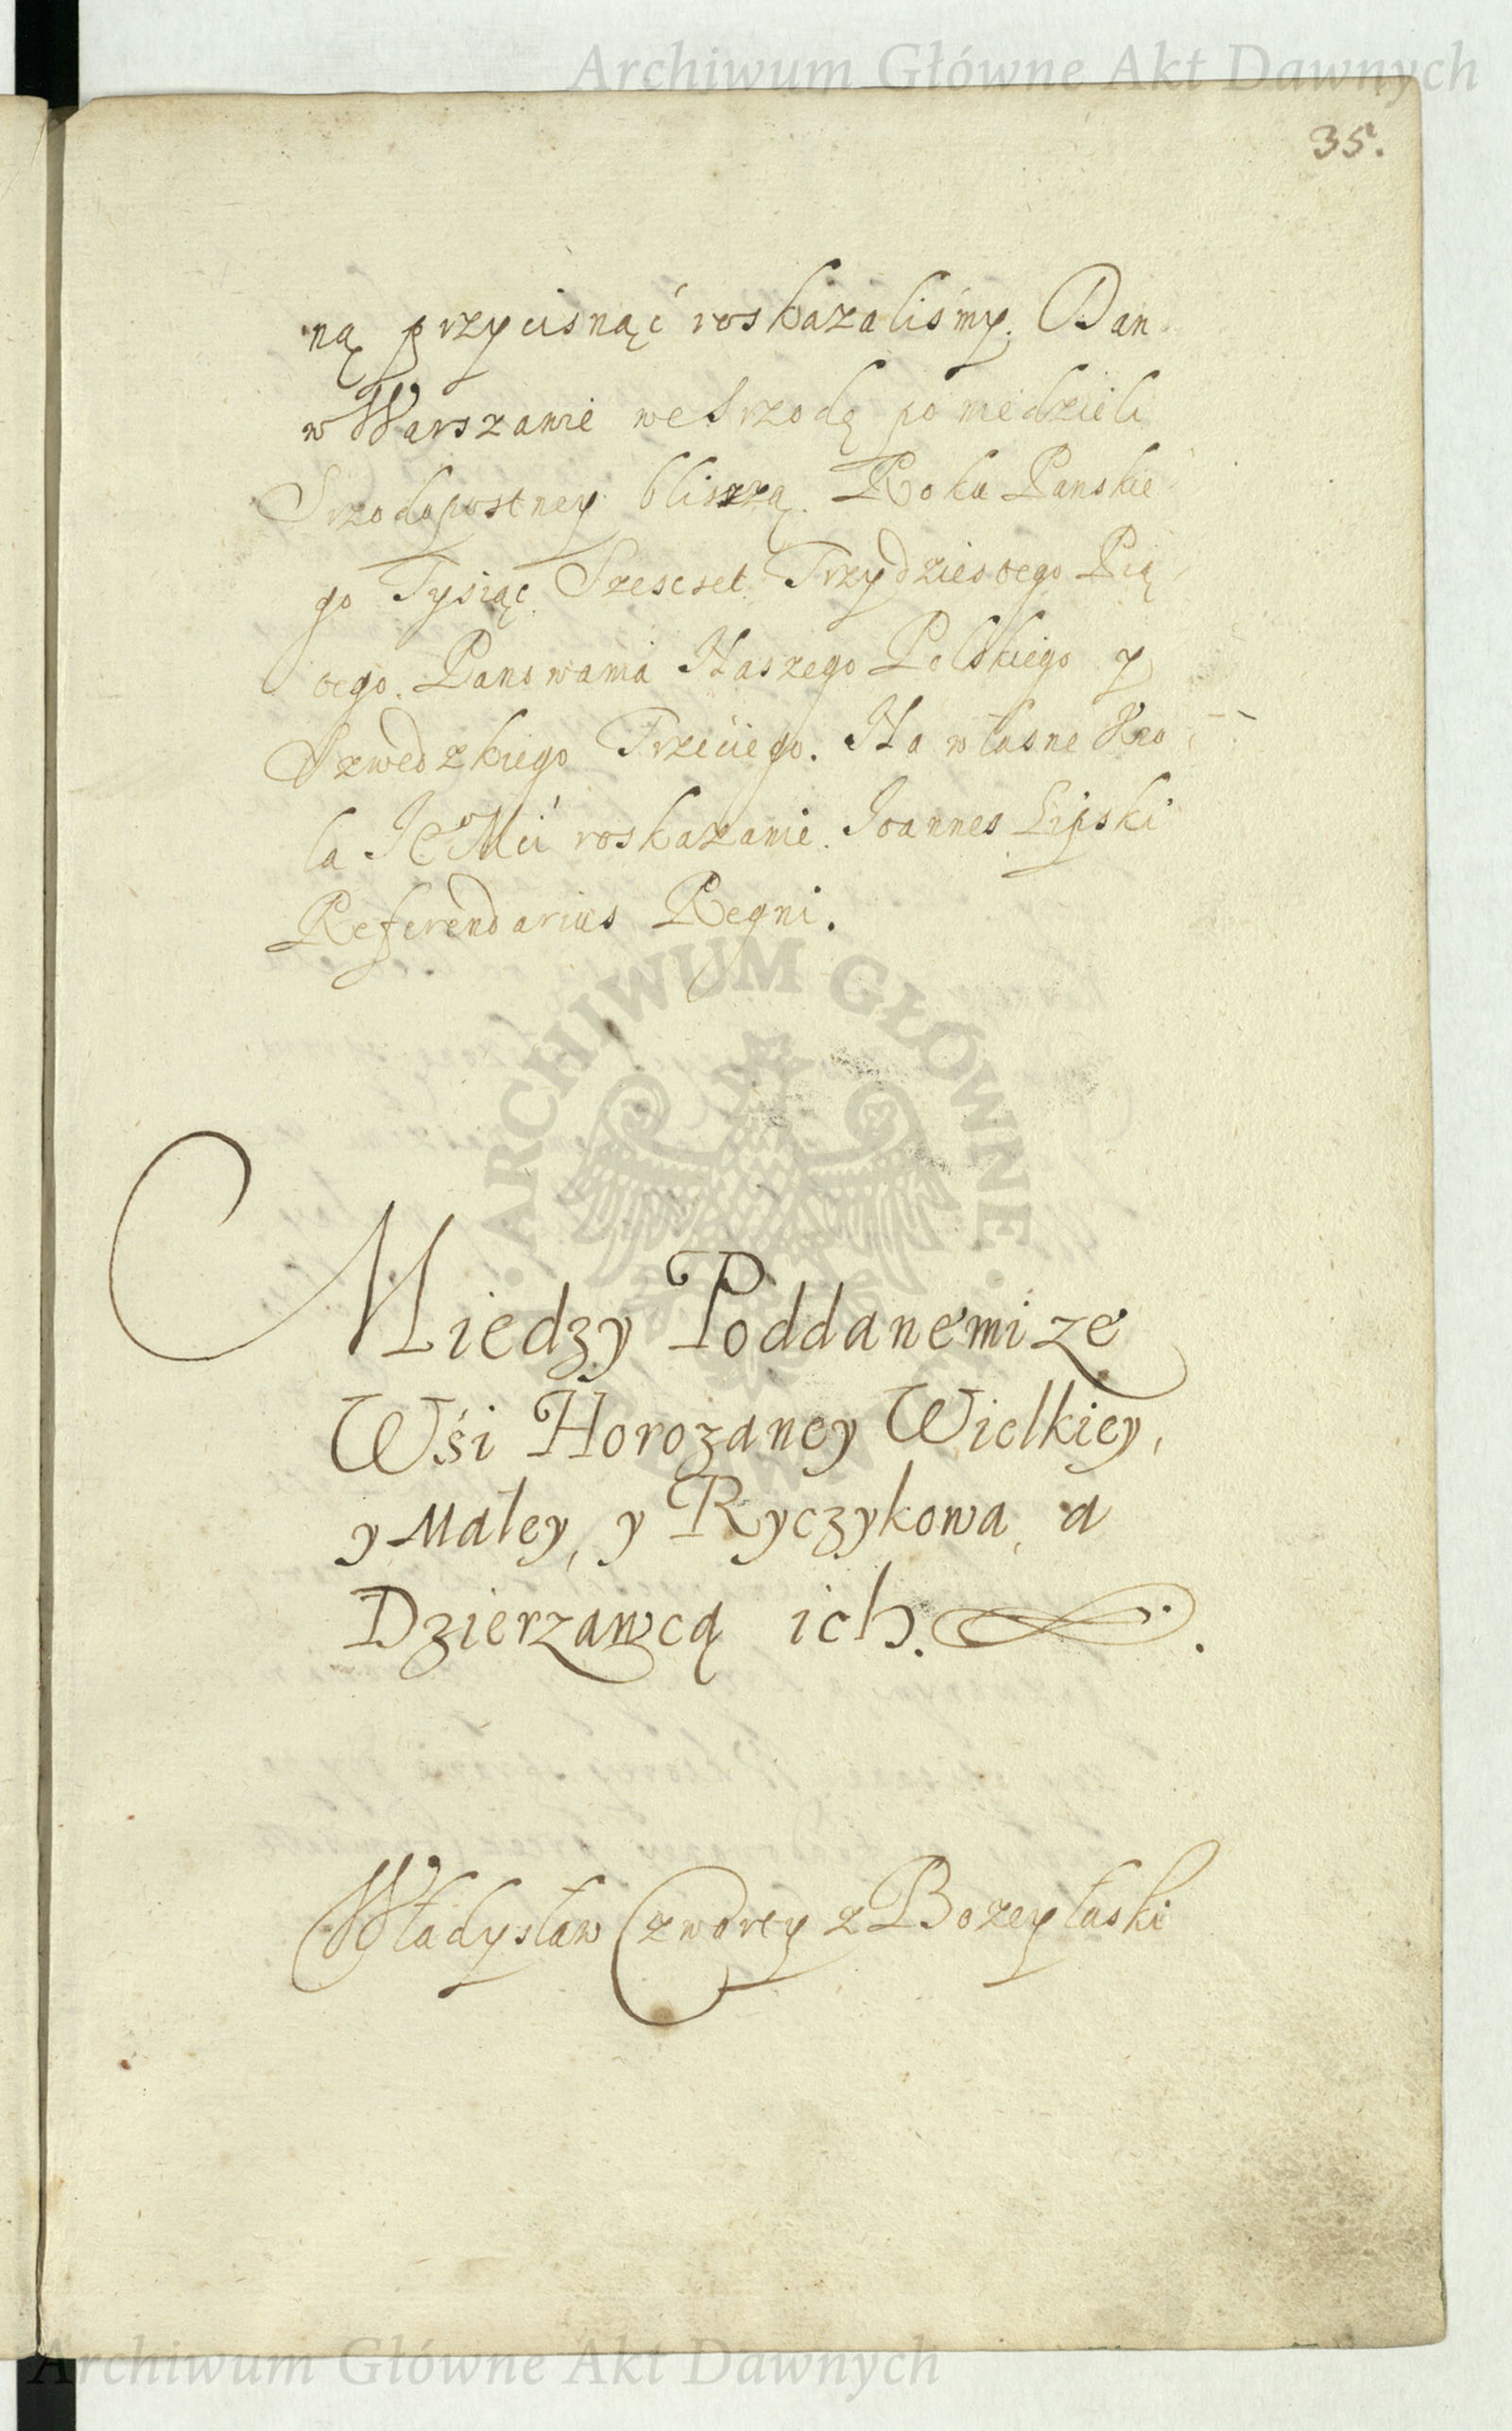 Archiwum Główne Akt Dawnych
35.
ną przycisnąć roskazaliśmy. Dan
w Warszawie we Srzodę po niedzieli
Srzodopostney bliszą. Roku Panskie
go Tysiąc Szescset Trzydziestego Pią
tego. Panowania Naszego Polskiego y
Szwedzkiego Trzeciego. Na własne Kro
la Je⁰ Mci roskazanie. Joannes Lipski
Referendarius Regni.
ARCHIWUM GŁÓWNE
Miedzy Poddanemi ze
Wśi Horozaney Wielkiey,
y Małey, y Ryczykowa, a
Dzierzawcą ich.
Władysław Czwarty z Bozey łaski
Archiwum Główne Akt Dawnych